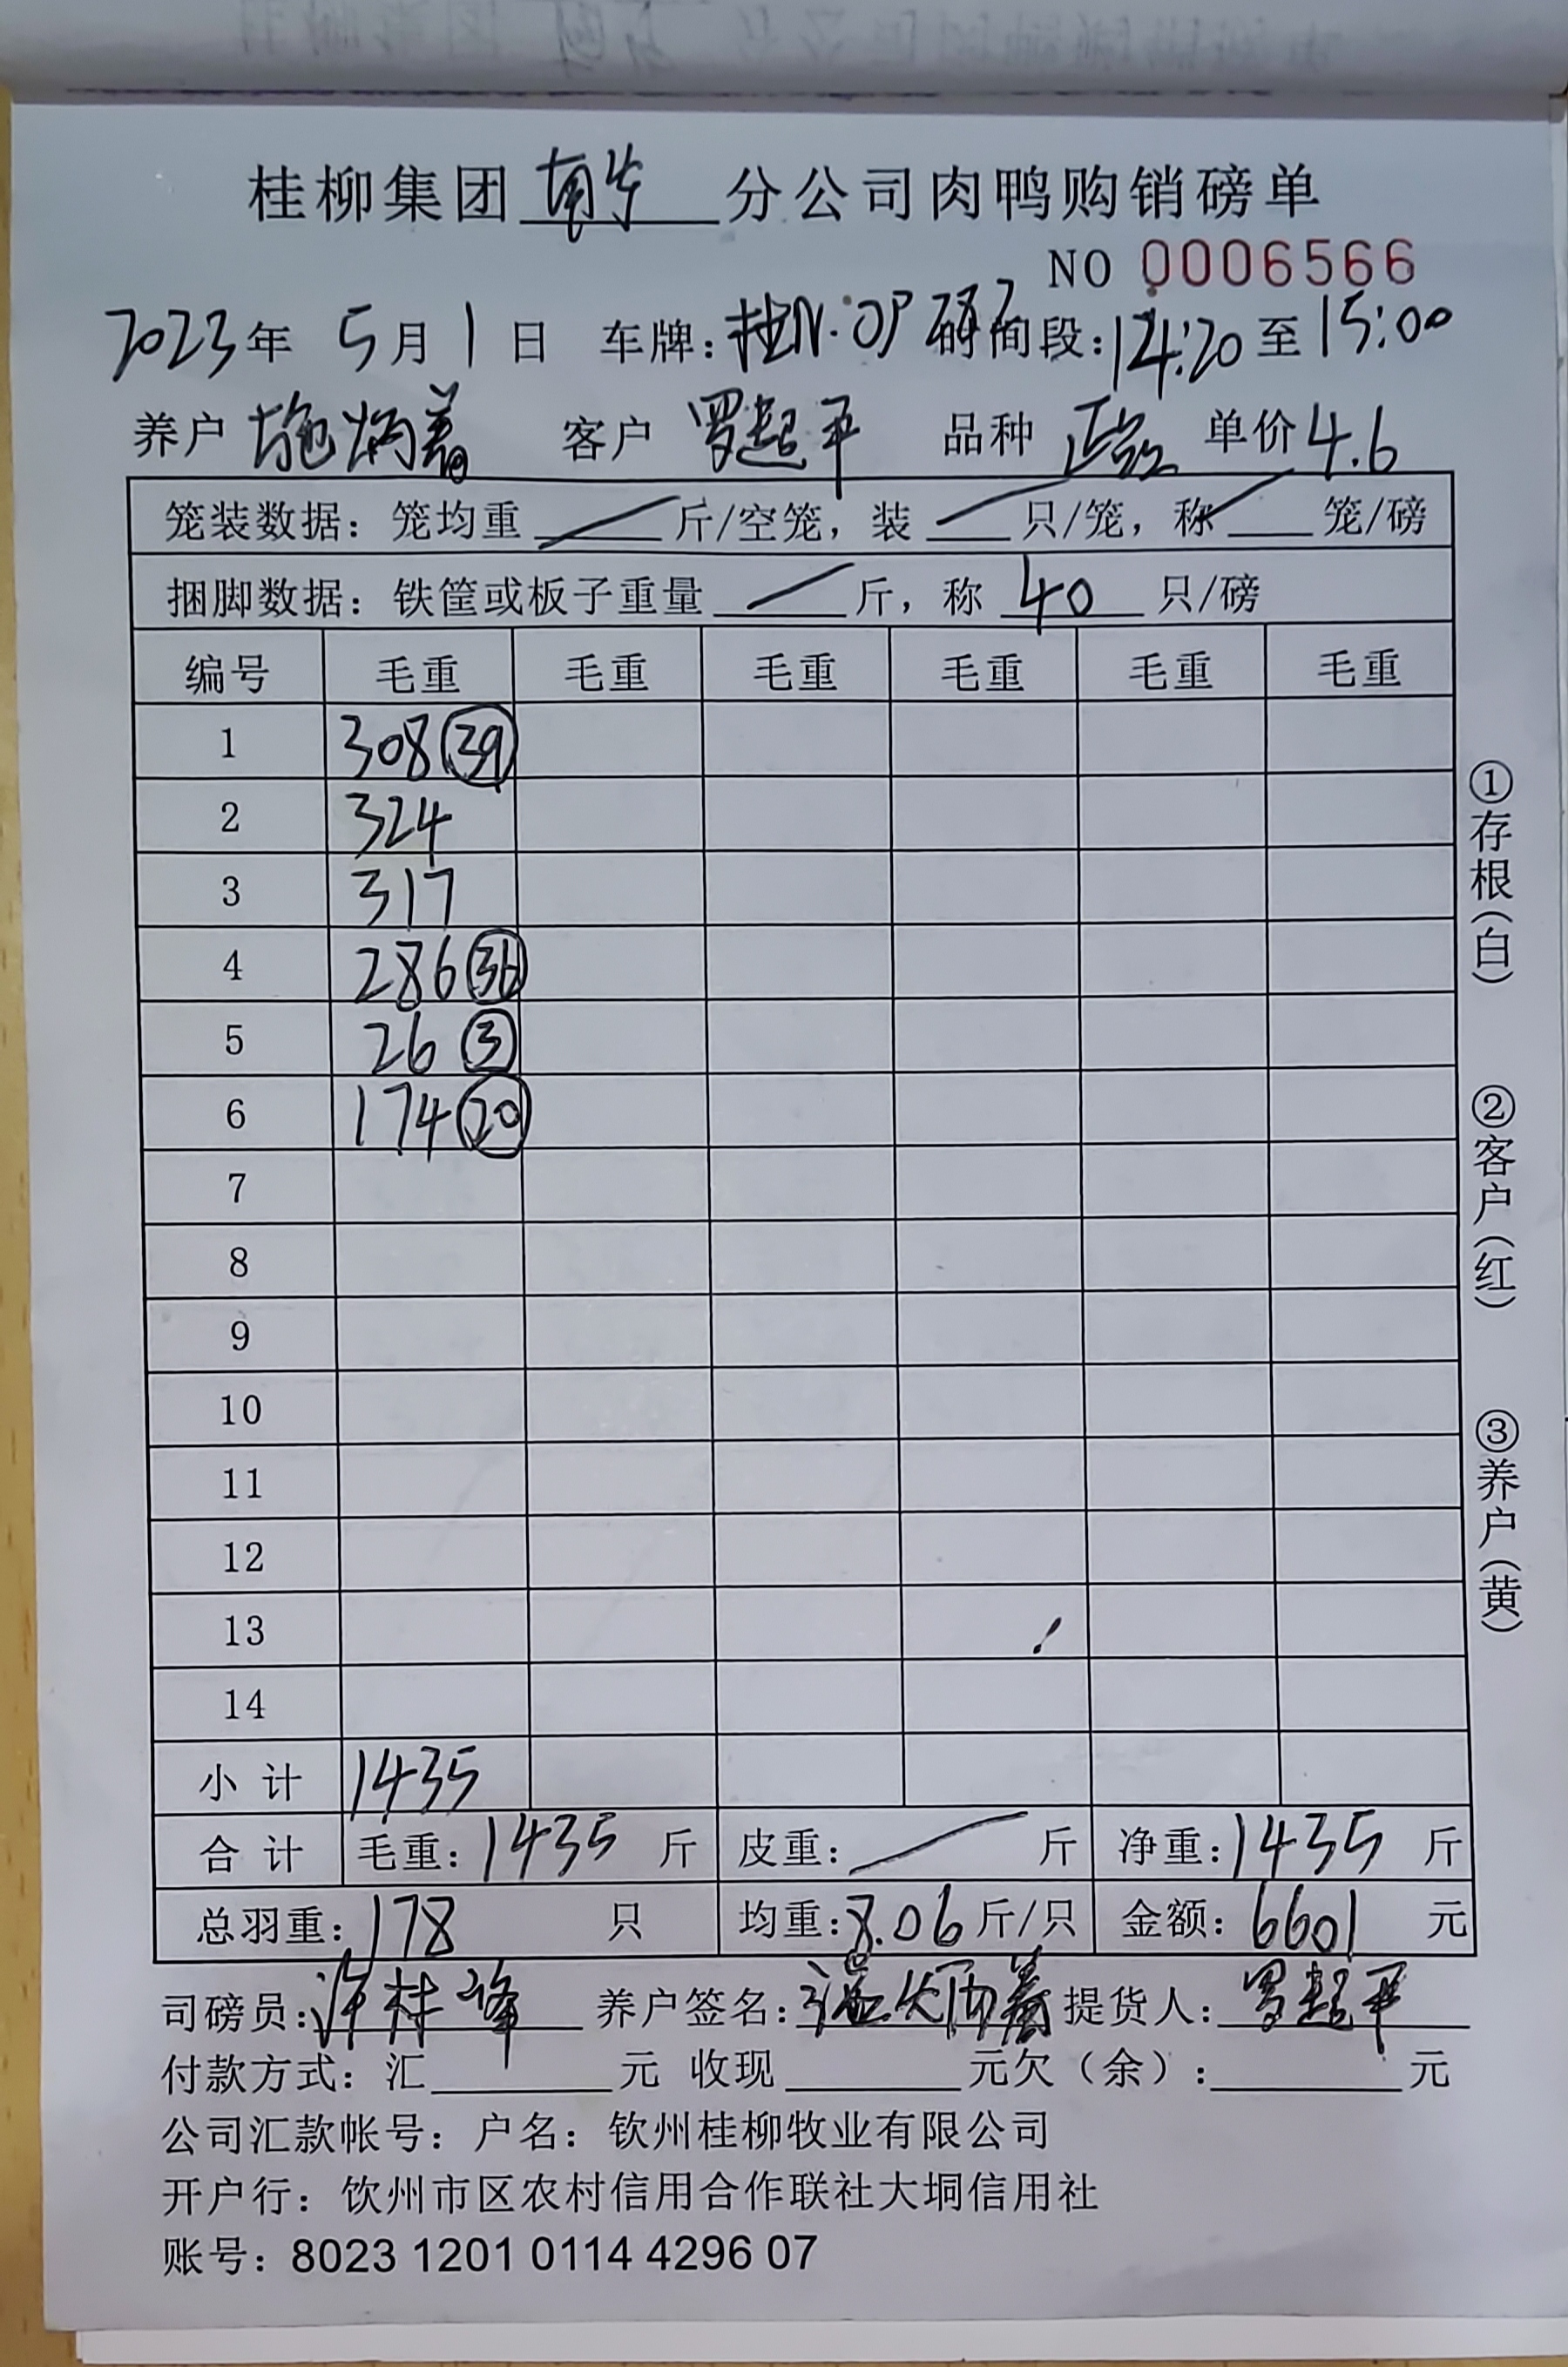 桂柳集团 分公司肉鸭购销磅单
NO 0006566
2023年 5月 1日 车牌:桂N· 时间段:14:20至15:00
养户 施炳善 客户 罗超平 品种 单价4.6
笼装数据:笼均重 斤/空笼,装 只/笼,称 笼/磅
捆脚数据:铁筐或板子重量 斤,称 40 只/磅
编号 毛重 毛重 毛重 毛重 毛重 毛重
1 308 39
2 324
3 317
4 286 36
5 26 3
6 174 20
7
8
9
10
11
12
13
14
小计 1435
合计 毛重:1435 斤 皮重: 斤 净重:1435 斤
总羽重:178 只 均重:8.06斤/只 金额:6601 元
司磅员:许桂峰 养户签名: 炳善 提货人:罗超平
付款方式:汇 元 收现 元欠(余): 元
公司汇款帐号:户名:钦州桂柳牧业有限公司
开户行:饮州市区农村信用合作联社大垌信用社
账号:8023 1201 0114 4296 07
①存根(白)
②客户(红)
③养户(黄)